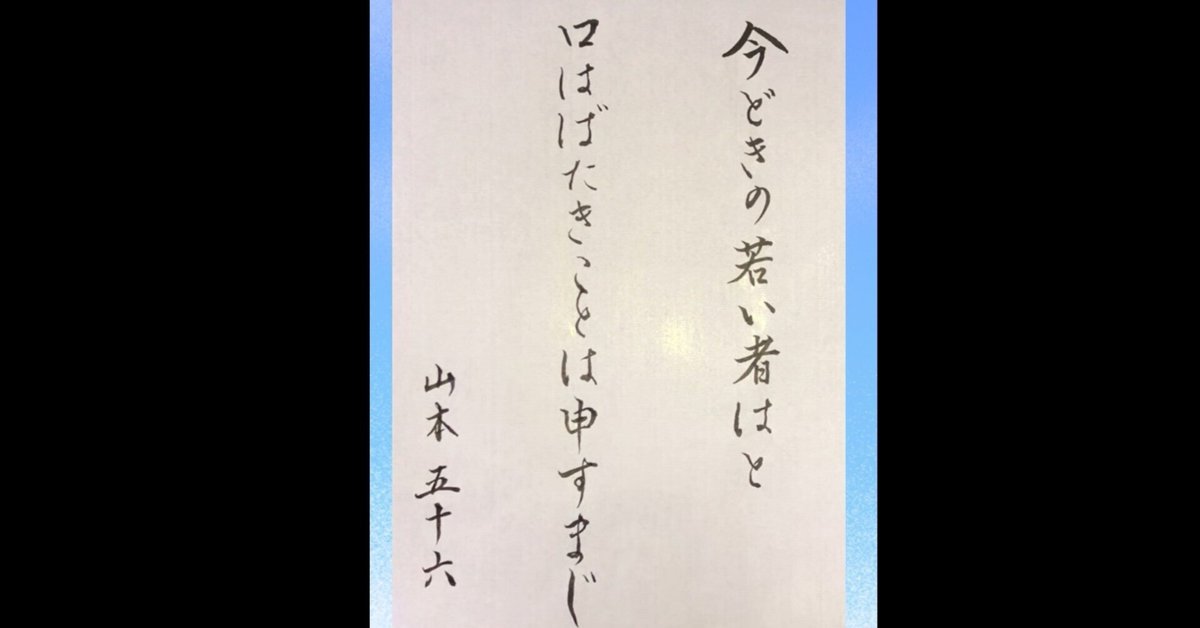 今どきの若い者はと
口はばたきことは申すまじ
山本 五十六